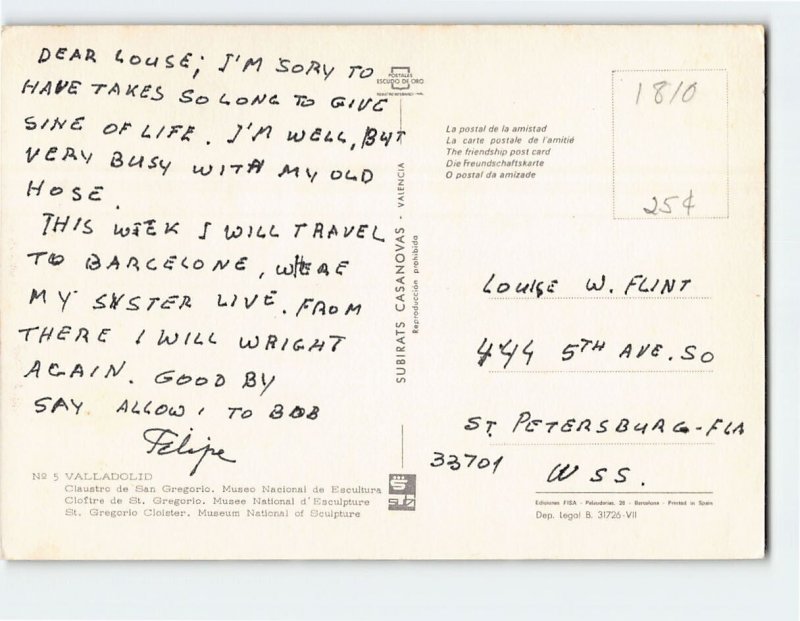 DEAR LOUSE; I'M SORY TO
HAVE TAKES SO LONG TO GIVE
SING OF LIFE. I'M WELL, BUT
VERY BUSY WITH MY OLD
HOSE.
THIS WEEK I WILL TRAVEL
TO BARCELONE, WERE
MY SYSTER LIVE. FROM
THERE I WILL WRIGHT
AGAIN. GOOD BY
SAY ALLOW, TO BOB
Felipe
Nº 5 VALLADOLID
Claustro de San Gregorio. Museo Nacional de Escultura
Cloître de St. Gregorio. Musee National d'Esculpture
St. Gregorio Cloister. Museum National of Sculpture
POSTALES
ESCUDO DE ORO
SUBIRATS CASANOVAS - VALENCIA
Reproducción prohibida
La postal de la amistad
La carte postale de l'amitié
The friendship post card
Die Freundschaftskarte
O postal da amizade
1810
25¢
LOUISE W. FLINT
444 5TH AVE. SO
ST. PETERSBURG-FLA
33701
WSS.
Ediciones FISA - Palaudarias, 26 - Barcelona - Printed in Spain
Dep. Legal B. 31726-VII